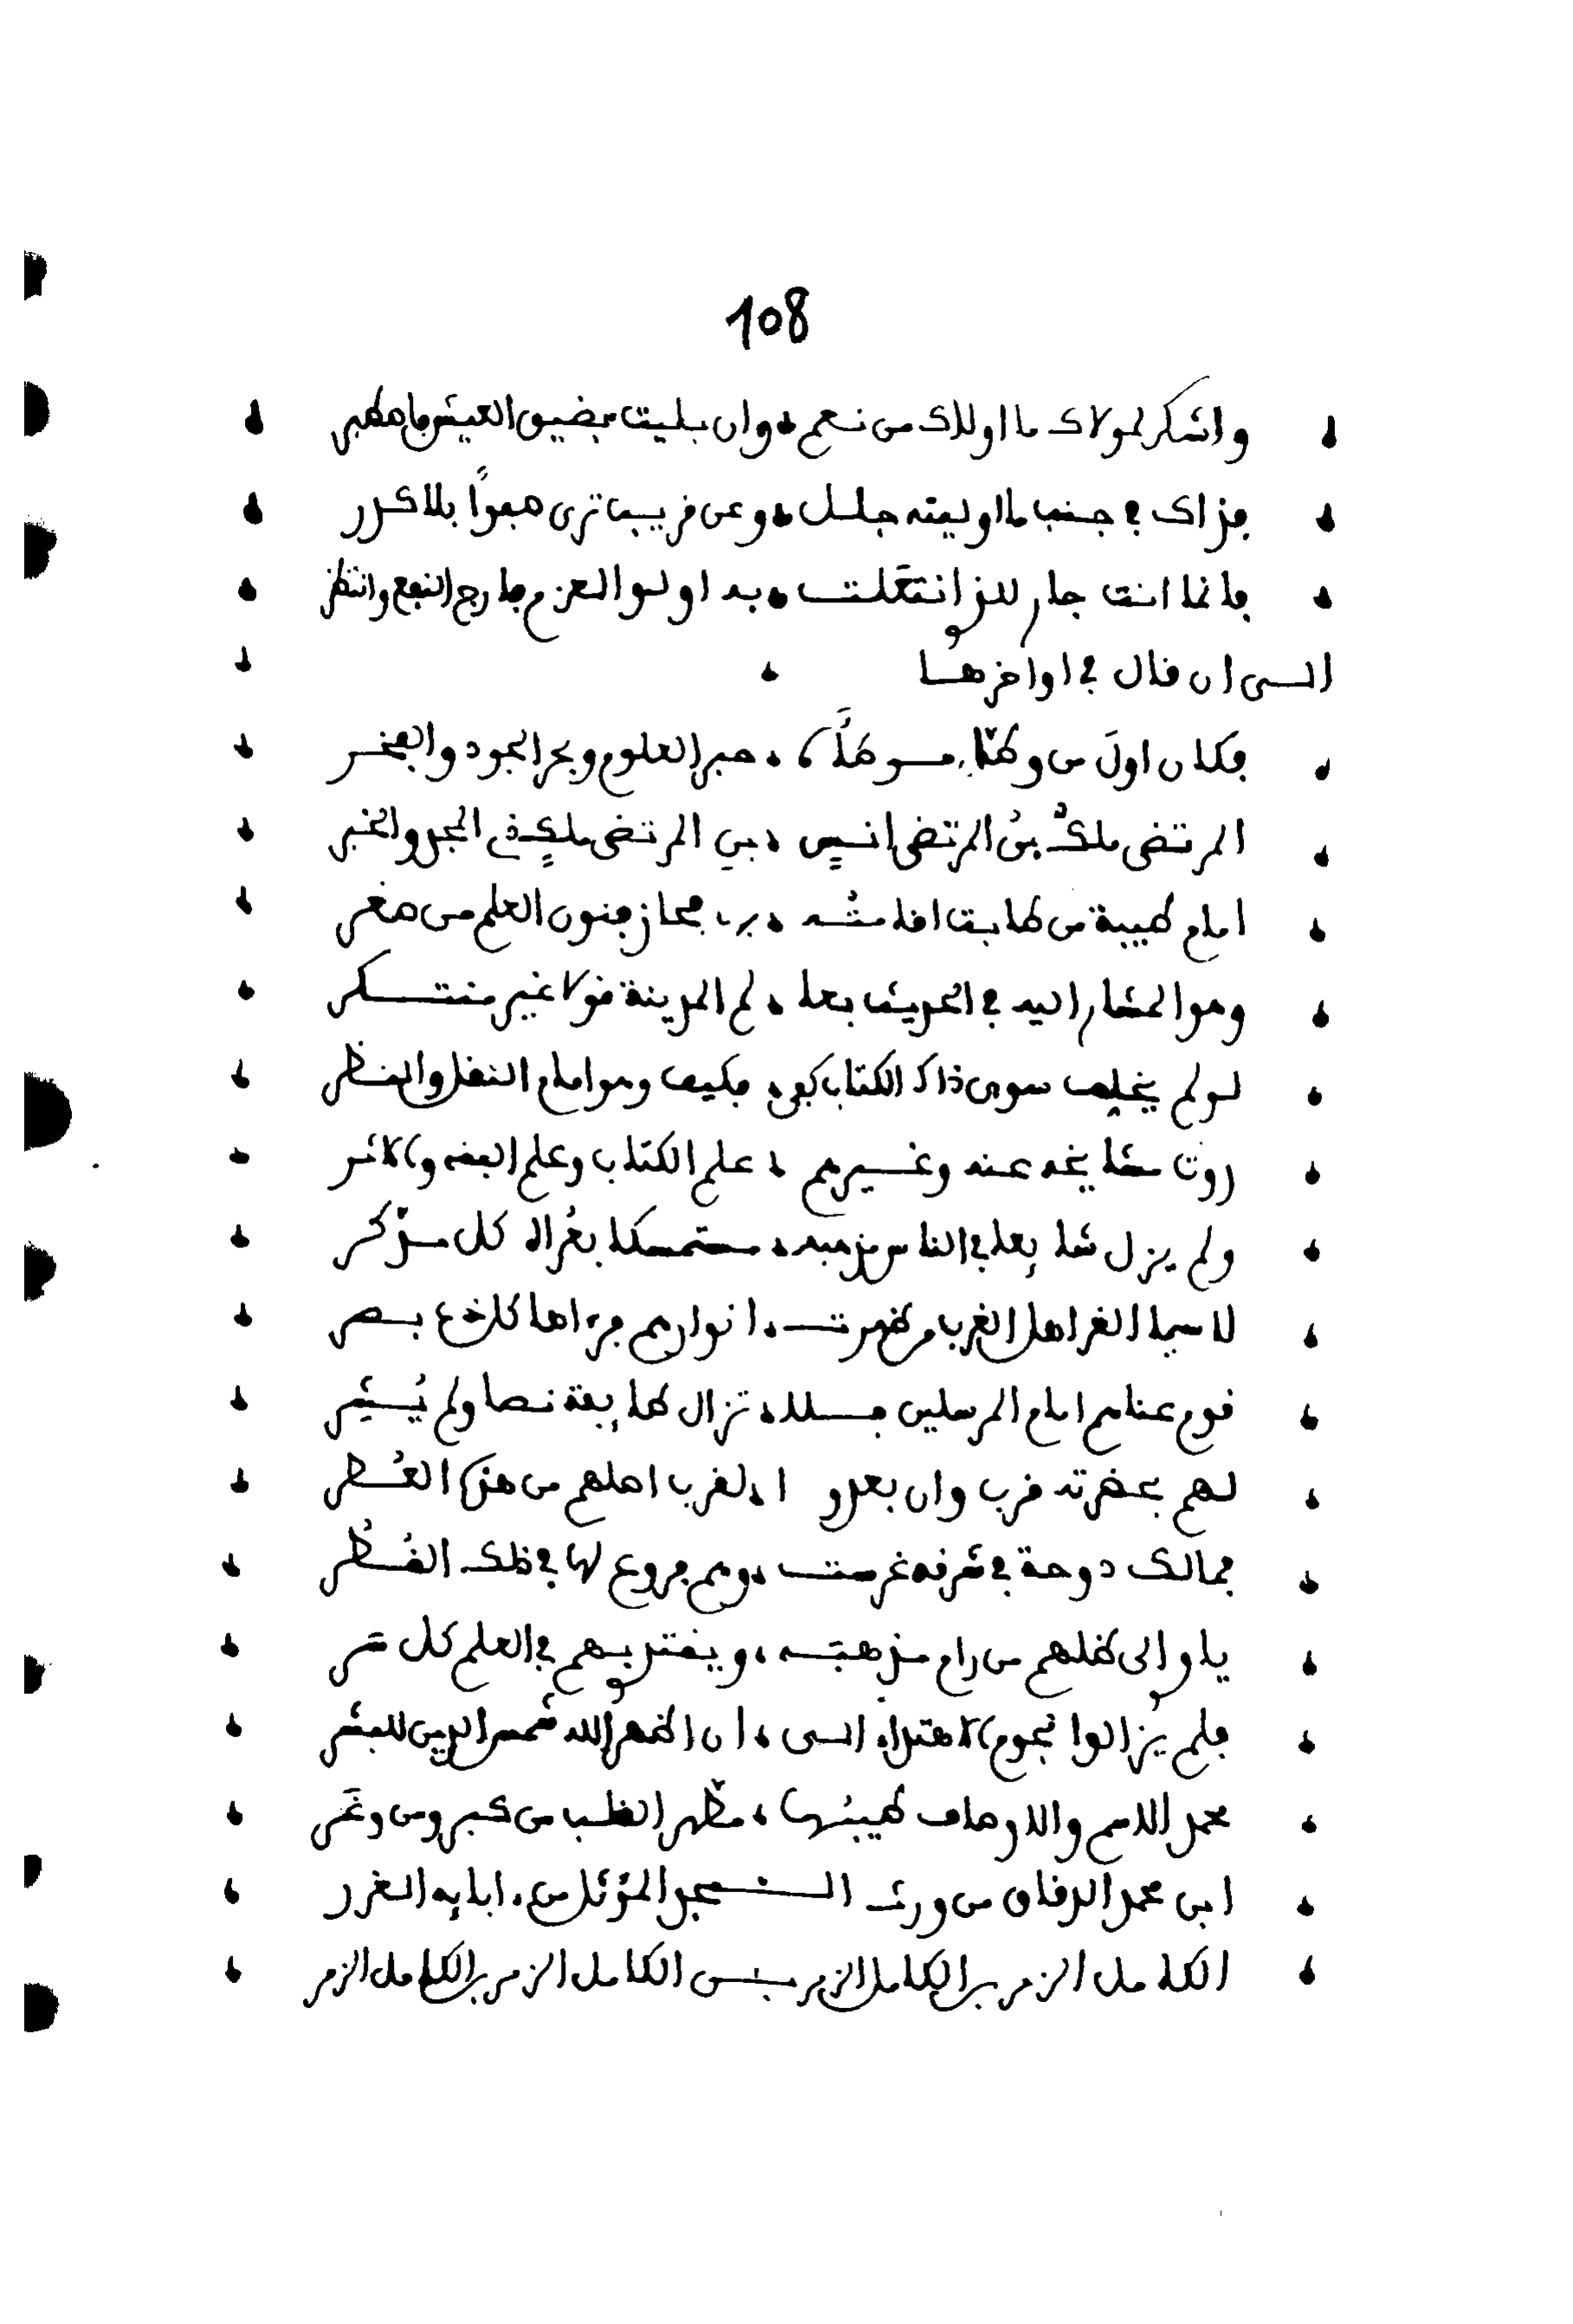 108
واشكر لمولاك ما اولاك من نعم وان بليت بضيق العيش فاصطبر
فذاك في جنب ما اوليته جلل وعن قريب ترى صفوًا بلا كدر
فانما انت جار للذ انتعلت به اولو العزم فارج النفع وانتظر
الى ان قال في اواخرها
فكان اولَ من وطّا موطَّأ حبر العلوم وبحر الجود والفخر
المرتضى ملكُ بنُ المرتضى انسٍ بن المرتضى ملكٍ في المجد والخبر
امام طيبة من طابت اقامته بها فحاز فنون العلم من صغر
وهو المشار اليه في الحديث بعا لم المدينة قولا غير منتكر
لو لم يخلف سوى ذاك الكتاب كفى فكيف وهو امام النقل والنظر
روت مشايخه عنه وغيرهم علم الكتاب وعلم الفقه والاثر
ولم يزل شايعا في الناس مذهبه مستمسكا بعُراه كل مدّكر
لا سيما الغر اهل الغرب من ظهرت انوارهم فرءاها كل ذي بصر
قوم عناهم امام المرسلين بلا تزال طايفة نصا ولم يُشِر
لهم بحضرته قرب وان بعدوا الغرب اهلهم من هذه العُطر
فمالك دوحة في شرقه غرست وهم فروع لها في ذلك القُطر
ياوالى ظلهم من رام مذهبه ويقتدي بهم في العلم كل سر
فلم يزالوا نجوم الاهتداء الى ان اظهر الله شمس الدين للبشر
محمد الاسم والاوصاف طيبُها مطهر القلب من كبر ومن وغَر
ابن محمد الرقاق من ورث المجد المؤثل من ابايه الغرر
الكامل الزمر بن الكامل الزمر بن الكامل الزمر بن الكامل الزمر